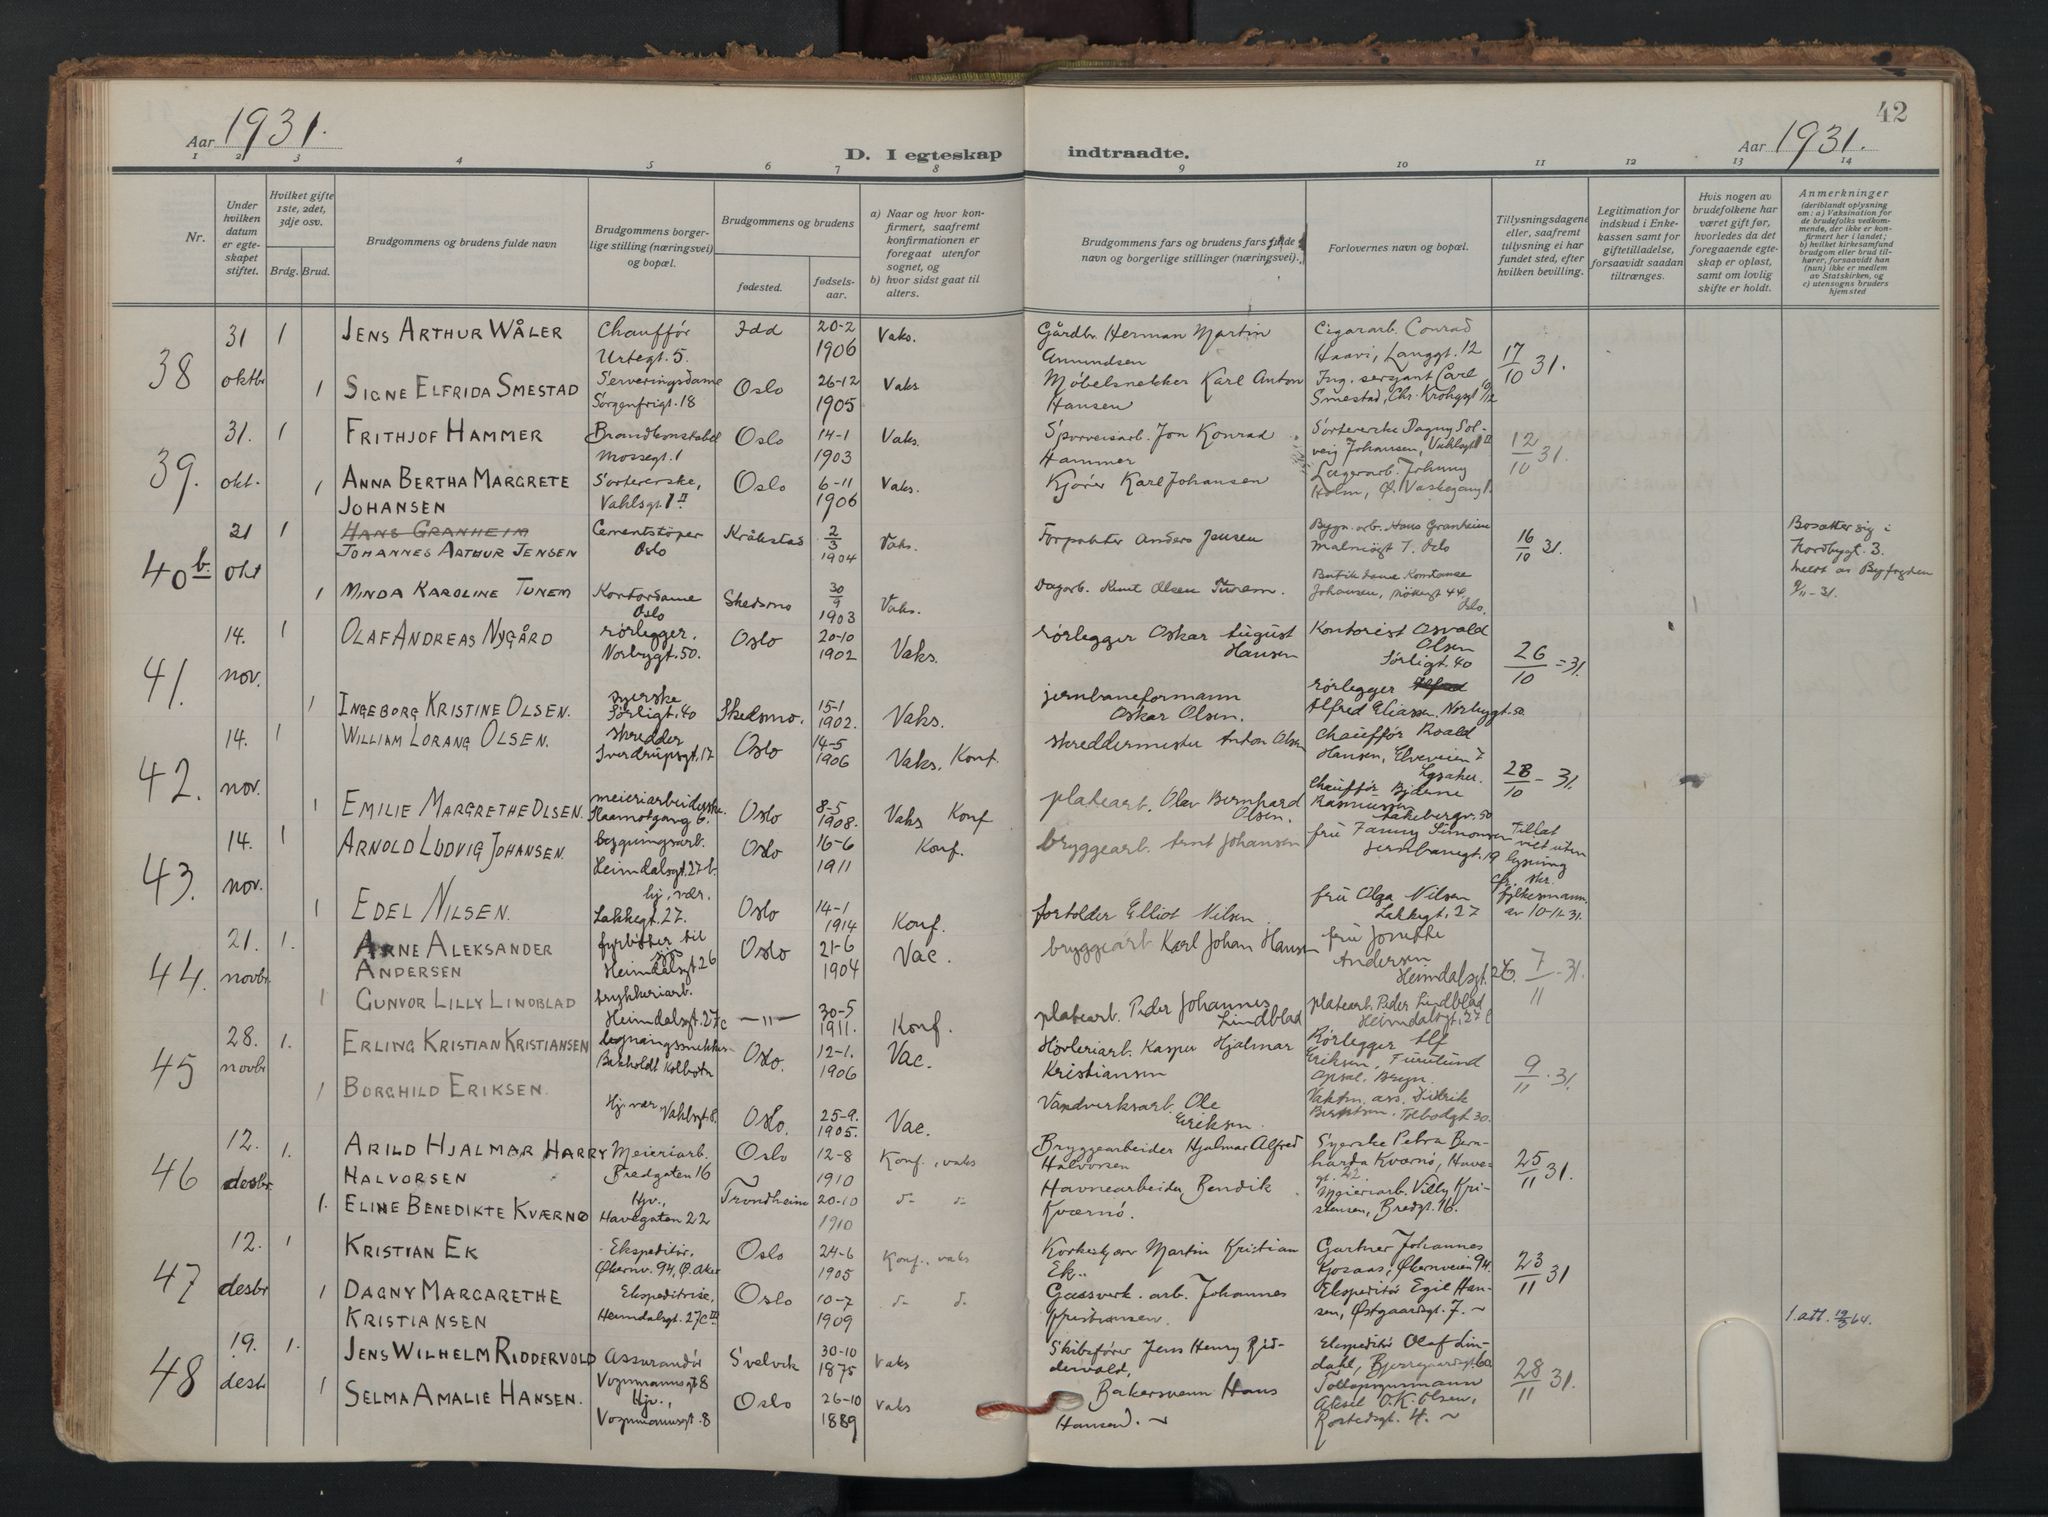 42
Aar 1931.
D. I egteskap indtraadte.
Aar 1931.
1 2 3 4 5 6 7 8 9 10 11 12 13 14
Nr.
Under hvilken datum er egteskapet stiftet.
Hvilket gifte 1ste, 2det, 3dje osv.
Brdg. Brud.
Brudgommens og brudens fulde navn
Brudgommens borgerlige stilling (næringsvei) og bopæl.
Brudgommens og brudens
fødested.
fødselsaar.
a) Naar og hvor konfirmert, saafremt konfirmationen er foregaat utenfor sognet, og
b) hvor sidst gaat til alters.
Brudgommens fars og brudens fars fulde navn og borgerlige stillinger (næringsvei).
Forlovernes navn og bopæl.
Tillysningsdagene eller, saafremt tillysning ei har fundet sted, efter hvilken bevilling.
Legitimation for indskud i Enkekassen samt for giftetilladelse, forsaavidt saadan tiltrænges.
Hvis nogen av brudefolkene har været gift før, hvorledes da det foregaaende egteskap er opløst, samt om lovlig skifte er holdt.
Anmerkninger
(deriblandt oplysning om: a) Vaksination for de brudefolks vedkommende, der ikke er konfirmert her i landet;
b) hvilket kirkesamfund brudgom eller brud tilhører, forsaavidt han (hun) ikke er medlem av Statskirken, og
c) utensogns bruders hjemsted
38 31 oktbr 1 JENS ARTHUR WÅLER Chauffør Urtegt. 5. Idd 20-2 1906 Vaks. Gårdbr. Herman Martin Amundsen Cigararb. Conrad Haavi, Langgt. 12 17/10 31.
1 SIGNE ELFRIDA SMESTAD Serveringsdame Sorgenfrigt. 18 Oslo 26-12 1905 Vaks Møbelsnekker Karl Anton Hansen Ing. sergant Carl Smestad, Chr. Krohgsgt
39. 31. okt. 1 FRITHJOF HAMMER Brandkonstabel Mossegt. 1 Oslo 14-1 1903 Vaks. Sporveisarb. Jon Konrad Hammer Sortererske Dagny Solveig Johansen, Vahlsgt 1 II 12/10 31.
1 ANNA BERTHA MARGRETE JOHANSEN Sortererske, Vahlsgt. 1 II Oslo 6-11 1906 Vaks. Kjører Karl Johansen Lagerarb. Johnny Holm, Ø. Vaskegang 1.
40 b. 21 okt 1 HANS GRANHEIM
JOHANNES ARTHUR JENSEN Cementstøper Oslo Kråkstad 2/3 1904 Vaks. Forpakter Anders Jensen Bygn. arb. Hans Granheim Malmøgt 7. Oslo 16/10 31. Bosatter sig i Nordbygt. 3. Meldt av Byfogden 9/11-31.
1 MINDA KAROLINE TUNEM Kontordame Oslo Skedsmo 30/9 1903 Vaks. Dagarb. Knut Olsen Tunem. Butikdame Konstanse Johansen, 44, Oslo.
41. 14. nov. 1 OLAF ANDREAS NYGÅRD rørlegger. Norbygt. 50. Oslo 20-10 1902 Vaks. rørlegger Oskar August Hansen Kontorist Osvald Olsen Sørligt. 40 26/10 = 31.
1 INGEBORG KRISTINE OLSEN. syerske Sørligt. 40 Skedsmo. 15-1 1902. Vaks. jernbaneformann Oskar Olsen. rørlegger Alfred Alfred Eliassen. Norbygt. 50.
42. 14. nov. 1 WILLIAM LORANG OLSEN. skredder Sverdrupsgt. 17 Oslo 14-5 1906 Vaks. Konf. skreddermester Anton Olsen Chauffør Roald Hansen, Elveveien 7 Lysaker. 28/10 - 31.
1 EMILIE MARGRETHE OLSEN. meieriarbeiderske. 6. Oslo 8-5 1908. Vaks Konf platearb. Olav Bernhard Olsen. Chauffør Bjarne Rasmussen Aakebergv. 50
43. 14. nov. 1 ARNOLD LUDVIG JOHANSEN. bygningsarb. Heimdalsgt. 27 b. Oslo 16-6 1911 Konf. bryggearb. Arnt Johansen fru Fanny Simonsen Jernbanegt. 19 Tillat viet uten lysning cfr. skr. fylkesmann. av 10-11-31.
1 EDEL NILSEN. hj. vær. Lakkegt. 27. Oslo 14-1 1914 Konf. forfolder Elliot Nilsen. fru Olga Nilsen Lakkegt. 27
44. 21. novbr. 1. ARNE ALEKSANDER ANDERSEN fyrbøter til sjøs Heimdalsgt. 26 Oslo 21-6 1904 Vac. bryggearb. Karl Johan Hansen fru Josefte Andersen Heimdalsgt. 26. 7/11 - 31.
1 GUNVOR LILLY LINDBLAD trykkeriarb. Heimdalsgt. 27c —"— 30-5 1911. Konf. platearb. Peder Johannes Lindblad platearb. Peder Lindblad Heimdalsgt. 27 c
45 28. novbr 1. ERLING KRISTIAN KRISTIANSEN bygningssnekker Kolbotn Oslo. 12-1. 1906 Vac. Høvleriarb. Kasper Hjalmar Kristiansen Rørlegger Alf Eriksen, Furulund Opsal. Bryn. 9/11 - 31.
1 BORGHILD ERIKSEN. Hj. vær, Vahlsgt. 8. Oslo. 25-9. 1905. Vac. Vandverksarb. Ole Eriksen. Vaktm. ass. Didrik Berntsen. Tolbodgt 30.
46 12. desbr. 1. ARILD HJALMAR HARRY HALVORSEN Meieriarb. Bredgaten 16 Oslo 12-8 1910 Konf., vaks Bryggearbeider Hjalmar Alfred Halvorsen Syerske Petra Bernharda Kværnø, Havegt. 22 25/11 31.
1. ELINE BENEDIKTE KVÆRNØ Hjv., Havegaten 22 Trondheim 20-10 1910 d- d- Havnearbeider Bendik Kværnø. Meieriarb. Villy Kristensen, Bredgt. 16.
47 12. desbr 1 KRISTIAN EK Ekspeditør, Økernv. 94, Ø. Aker Oslo 24-6 1905 Konf., vaks Korkeskjærer Martin Kristian Ek. Gartner Johannes Kjosaas, Økernveien 94. 23/11 31
1 DAGNY MARGARETHE KRISTIANSEN Ekspeditrise, Heimdalsgt. 27c III Oslo 10-7 1909 d- d- Gassverk. arb. Johannes Kristiansen. Ekspeditør Egil Hansen, Østgaardsgt. 7. 1. att. 19/3 64.
48 19. desbr 1. JENS WILHELM RIDDERVOLD Assurandør Vognmannsgt 8 Svelvik 30-10 1875 Vaks Skibsfører Jens Henry Riddervold, Ekspeditør Olaf Lindahl, Bjerregaardsgt. 60. 28/11 31.
1 SELMA AMALIE HANSEN. Hjv., Vognmannsgt. 8 Oslo 26-10 1889 vaks Bakersvenn Hans Hansen. Tollopsynsmann Aksel O. K. Olsen, Rostedsgt. 4.